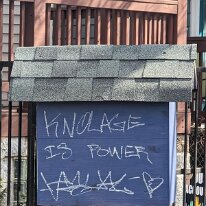 KNOLAGE
IS POWER